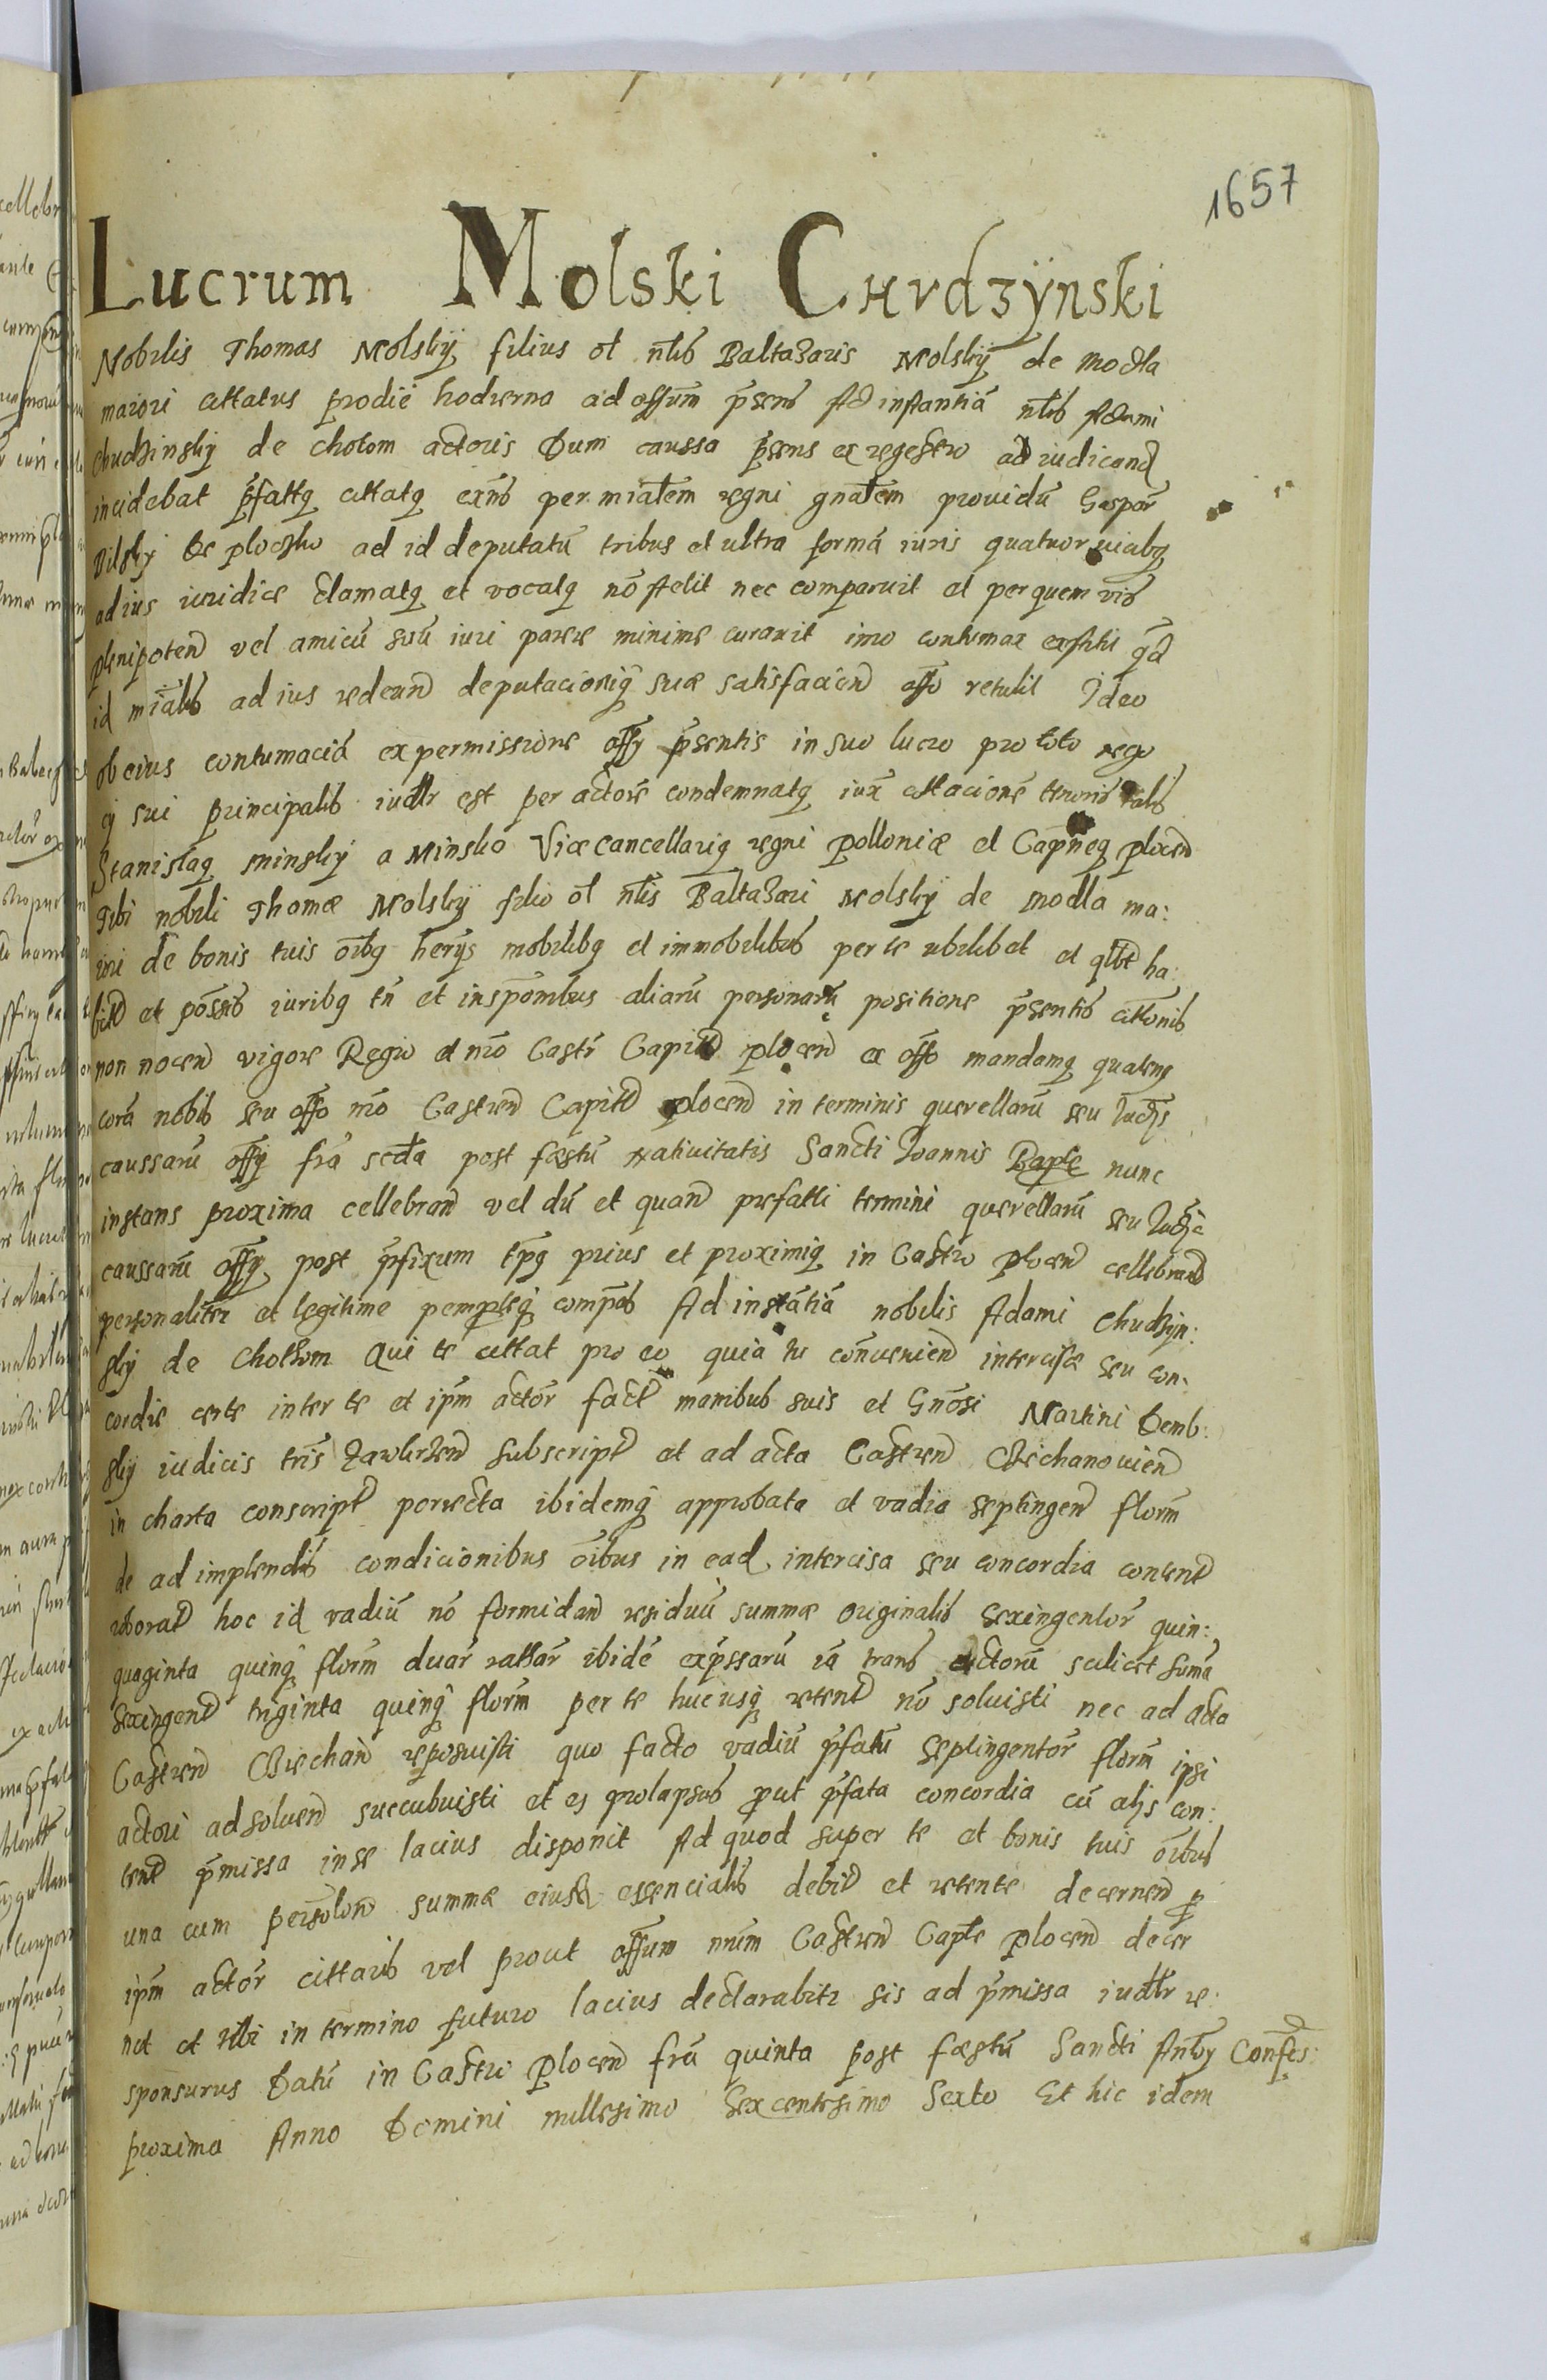 1657
Lucrum Molski Chudzÿnski
Nobilis Thomas Molskij filius ol nlis Baltazaris Molskij de Modla
maiori cittatus prodie hodierna ad offum pns Ad instantiā nlis Adami
Chudzinskij de Cholom actoris Dum caussa pñs ex regestro ad iudicand
incidebat pfattq cittatq exns per miālem regni gnalem prouidū Gaspar
Bilskij de ploczko ad id deputatū tribus et ultra formā iuris quatuor uicibq
ad ius iuridice clamatq et vocatq nō stetit nec comparuit et per quemvis
plenipotend vel amicū suū iuri parere minime curauit imo contumax exstitit qd
id miālis ad ius redeund deputacioniq suæ satisfaciend offo retulit Ideo
ob eius contumaciā ex permissione offy pñsentis in suo lucro pro toto nego
cy sui principalis iudlr est per actorē condemnatq iux cittacionē tenoris talis
Stanislaq minskij a Minsko Vicecancellariq regni Polloniæ et Capneq plocen
Tibi nobili Thomæ Molskij filio ol nlis Baltazari Molskij de Modla ma:
iori de bonis tuis oibq herijs mobilibq et immobilibus per te ubilibet et qlbt ha:
bitd et possis iuribq tn et inspombus aliarū personarū positione psentis cittonis
non nocend vigore Regio et nro Castr Capitd plocen ex offo mandamq quatenq
corā nobis seu offo nro Castren Capitd plocen in terminis querellarū seu Iudijs
caussarū offy fra scda post fæstū nativitatis Sancti Ioannis Bapte nunc
instans proxima cellebrand vel dū et quand præfatti termini querellarū seu Iudia
caussarū offy post pfixum tpq prius et proximiq in Castro plocen cellebrand
personaliter et legitime pemptieq compis Ad instātiā nobilis Adami Chudzÿn:
skij de Cholhom Qui te cittat pro eo quia tu convenien intercisæ seu con:
cordie certe inter te et ipm actor fact manibus suis et Gnosi Martini Demb:
skij iudicis tris Zawkrzen subscript et ad acta Castren Ciechanouien
in charta conscript porrecta ibidemq approbata et vadia septingend florm
de ad implendis condicionibus oibus in ead intercisa seu concordia content
roborat hoc id vadiū nō formidand residuū summæ originalis sexingentor quin:
quaginta quinq florm duar rattar ibidē expssarū iā trans actorū scilicet sumā
sexingent triginta quinq florm per te hucusq retent nō soluisti nec ad acta
Castren Ciechan reposuisti quo facto vadiū pfatū septingentor florm ipsi
actori ad soluend succubuisti et es prolapsus put pfata concordia cū alijs con:
tent pmissa in se lacius disponit Ad quod super te et bonis tuis oibus
una cum persolon summæ eiusd essencialis debit et retente decernend p
ipm actor cittaris vel prout offum nrum Castren Capte plocen decer
net et tibi in termino futuro lacius declarabitr sis ad pmissa iudlr re:
sponsurus Datū in Castri Plocen fra quinta post fæstū Sancti Antoy Confes:
proxima Anno Domini millesimo Sexcentesimo Sexto Et hic idem